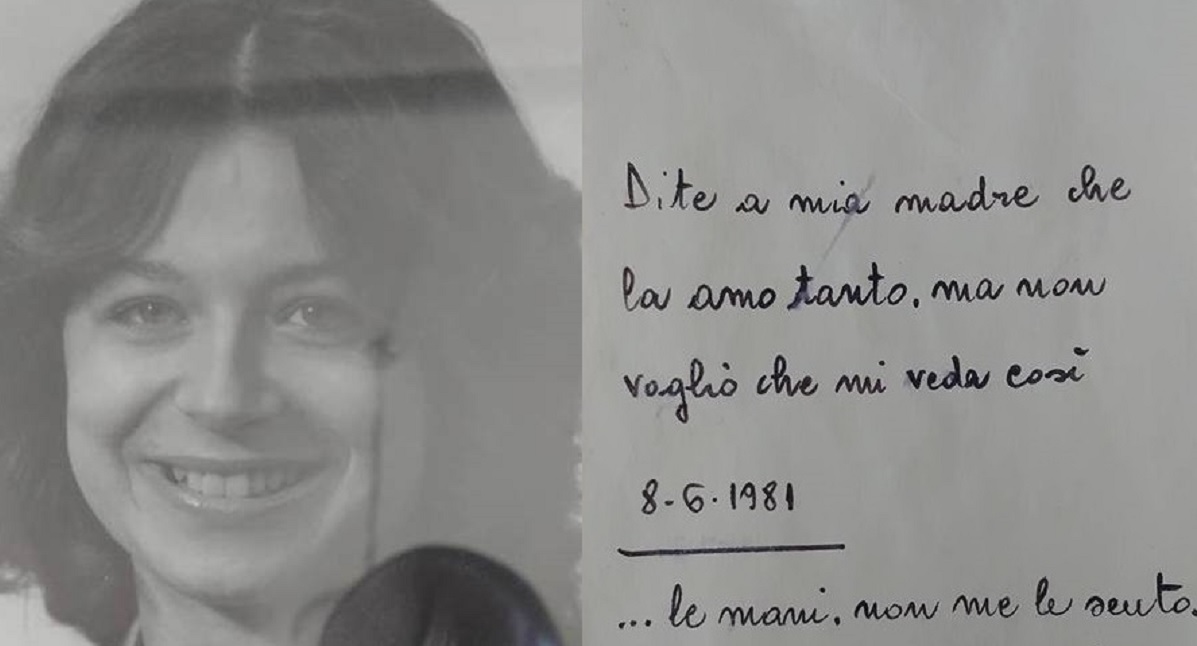 Dite a mia madre che
la amo tanto, ma non
voglio che mi veda così
8-6-1981
... le mani. non me le sento.